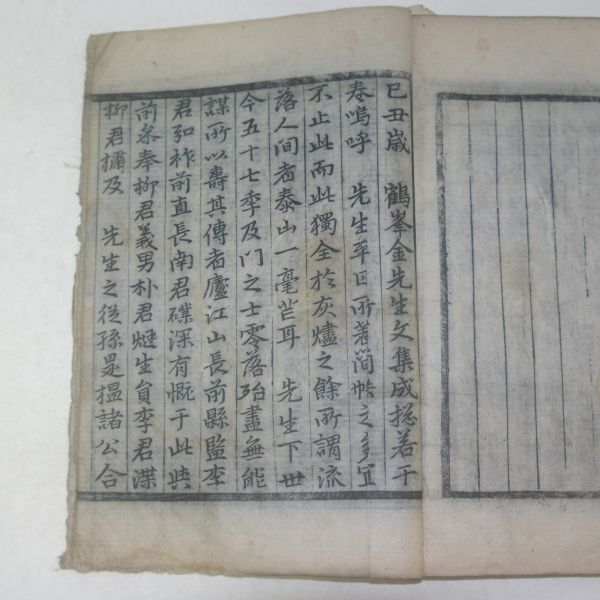 己丑歲 鶴峯金先生文集成捴若干
卷嗚呼 先生平日所著簡帙之多宜
不止此而此獨全於灰燼之餘所謂流
落人间者泰山一毫芒耳 先生下世
今五十七季及門之士零落殆盡無能
謀所以壽其傳者廬江山長前縣監李
君弘祚前直長南君磼深有慨于此與
前叅奉柳君義男朴君㷜生員李君渫
柳君橚及 先生之從孫是榅諸公合